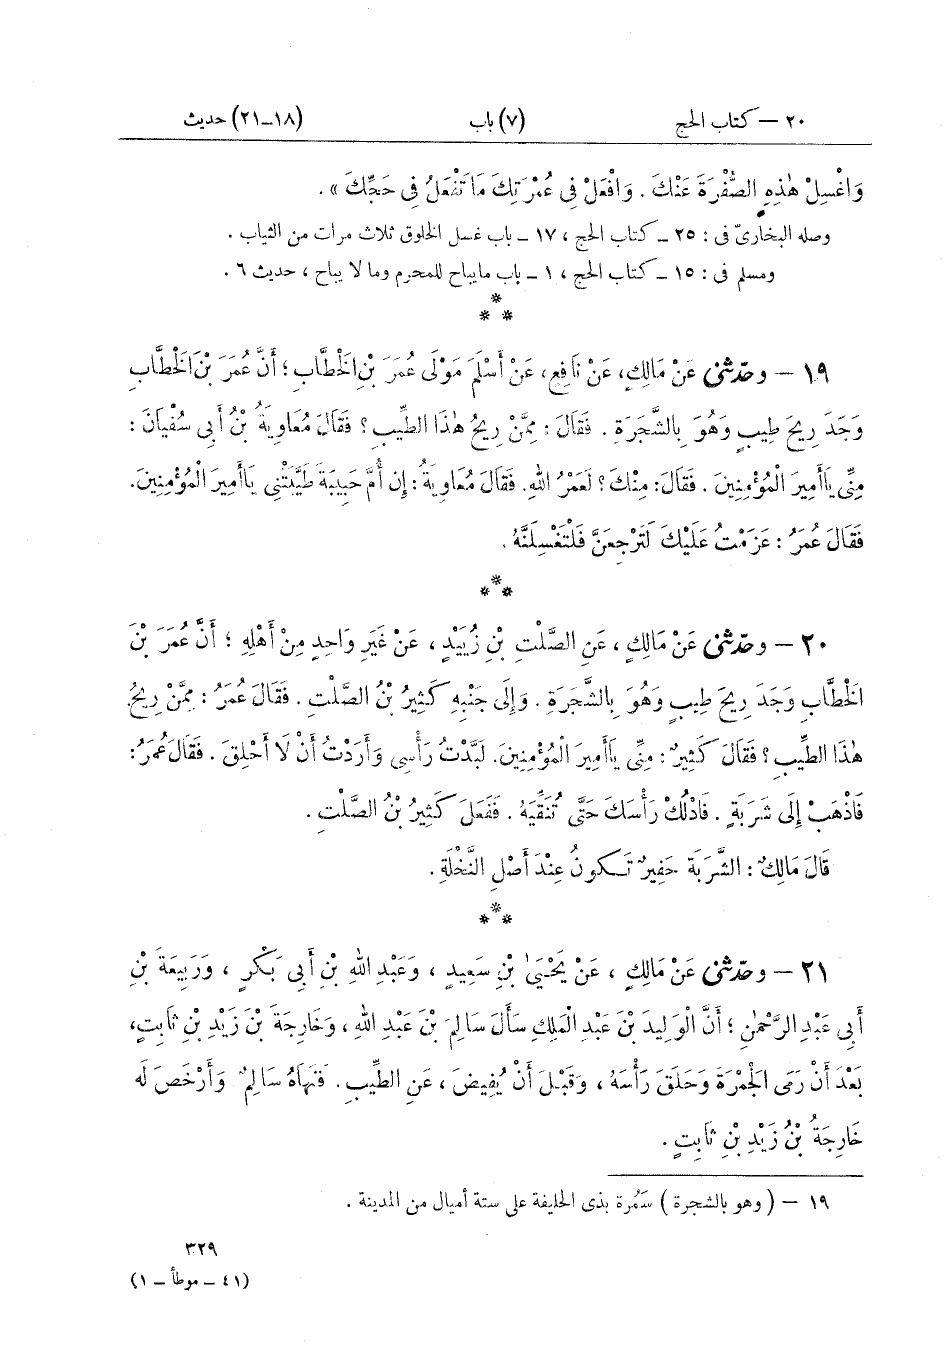 ٢٠ — كتاب الحج (٧) باب (١٨–٢١) حديث
وَاغْسِلْ هٰذِهِ الصُّفْرَةَ عَنْكَ . وَافْعَلْ فِى عُمْرَتِكَ مَا تَفْعَلُ فِى حَجِّكَ » .
وصله البخارىّ فى : ٢٥ ـ كتاب الحج ، ١٧ ـ باب غسل الخلوق ثلاث مرات من الثياب .
ومسلم فى : ١٥ ـ كتاب الحج ، ١ ـ باب ما يباح للمحرم وما لا يباح ، حديث ٦ .
*
* *
١٩ — وحدّثنى عَنْ مَالِكٍ، عَنْ نَافِعٍ، عَنْ أَسْلَمَ مَوْلَى عُمَرَ بْنِ الْخَطَّابِ ؛ أَنَّ عُمَرَ بْنَ الْخَطَّابِ
وَجَدَ رِيحَ طِيبٍ وَهُوَ بِالشَّجَرَةِ . فَقَالَ : مِمَّنْ رِيحُ هٰذَا الطِّيبِ ؟ فَقَالَ مُعَاوِيَةُ بْنُ أَبِى سُفْيَانَ :
مِنِّى يَا أَمِيرَ الْمُؤْمِنِينَ . فَقَالَ: مِنْكَ ؟ لَعَمْرُ اللهِ. فَقَالَ مُعَاوِيَةُ : إِن أُمَّ حَبِيبَةَ طَيَّبَتْنِى يَا أَمِيرَ الْمُؤْمِنِينَ.
فَقَالَ عُمَرُ : عَزَمْتُ عَلَيْكَ لَتَرْجِعَنَّ فَلْتَغْسِلَنَّهُ .
*
* *
٢٠ — وحدّثنى عَنْ مَالِكٍ ، عَنِ الصَّلْتِ بْنِ زُيَيْدٍ ، عَنْ غَيْرِ وَاحِدٍ مِنْ أَهْلِهِ ؛ أَنَّ عُمَرَ بْنَ
الْخَطَّابِ وَجَدَ رِيحَ طِيبٍ وَهُوَ بِالشَّجَرَةِ . وَإِلَى جَنْبِهِ كَثِيرُ بْنُ الصَّلْتِ . فَقَالَ عُمَرُ : مِمَّنْ رِيحُ
هٰذَا الطِّيبِ ؟ فَقَالَ كَثِيرٌ : مِنِّى يَا أَمِيرَ الْمُؤْمِنِينَ. لَبَّدْتُ رَأْسِى وَأَرَدْتُ أَنْ لَا أَحْلِقَ . فَقَالَ عُمَرُ :
فَاذْهَبْ إِلَى شَرَبَةٍ . فَادْلُكْ رَأْسَكَ حَتَّى تُنَقِّيَهُ . فَفَعَلَ كَثِيرُ بْنُ الصَّلْتِ .
قَالَ مَالِكٌ : الشَّرَبَةُ حَفِيرٌ تَكُونُ عِنْدَ أَصْلِ النَّخْلَةِ .
*
* *
٢١ — وحدّثنى عَنْ مَالِكٍ ، عَنْ يَحْيَىٰ بْنِ سَعِيدٍ ، وَعَبْدِ اللهِ بْنِ أَبِى بَكْرٍ ، وَرَبِيعَةَ بْنِ
أَبِى عَبْدِ الرَّحْمٰنِ ؛ أَنَّ الْوَلِيدَ بْنَ عَبْدِ الْمَلِكِ سَأَلَ سَالِمَ بْنَ عَبْدِ اللهِ ، وَخَارِجَةَ بْنَ زَيْدِ بْنِ ثَابِتٍ،
بَعْدَ أَنْ رَمَى الْجَمْرَةَ وَحَلَقَ رَأْسَهُ ، وَقَبْلَ أَنْ يُفِيضَ ، عَنِ الطِّيبِ . فَنَهَاهُ سَالِمٌ وَأَرْخَصَ لَهُ
خَارِجَةُ بْنُ زَيْدِ بْنِ ثَابِتٍ .
١٩ — ( وهو بالشجرة ) سَمُرة بذى الحليفة على ستة أميال من المدينة .
٣٢٩
(٤١ ـ موطأ ـ ١)